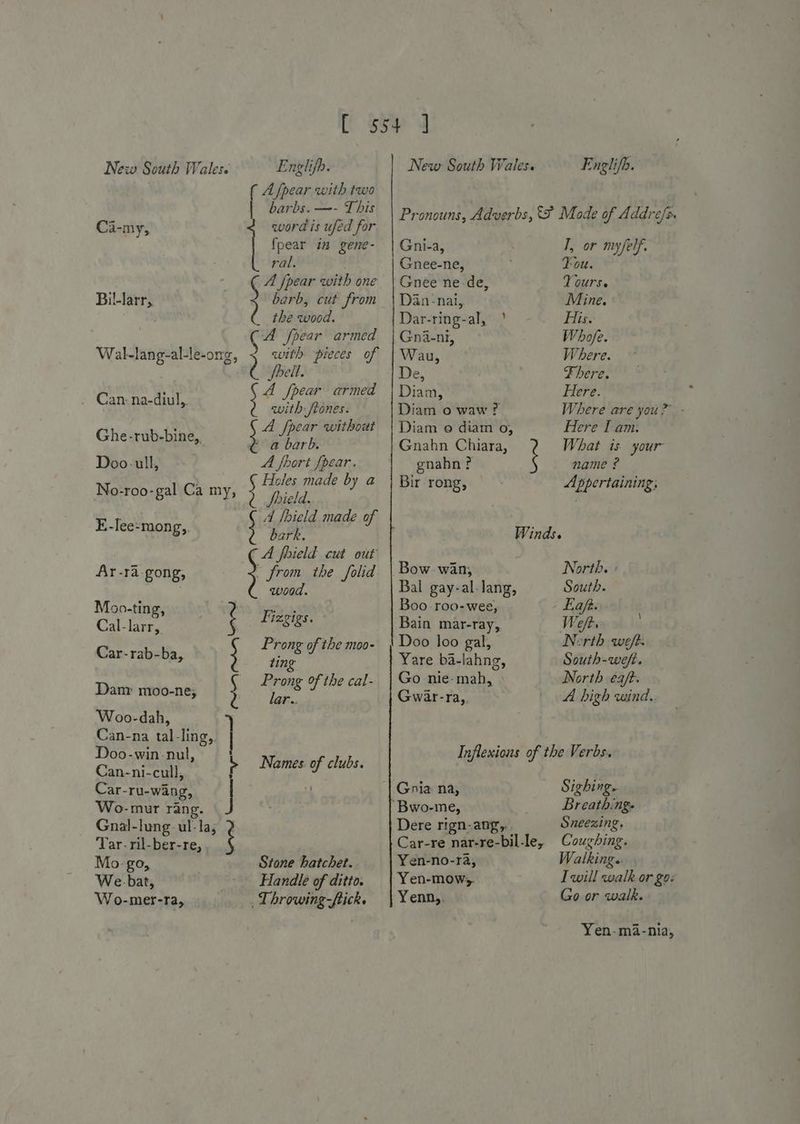 [ 554 ]
New South Wales. Engliſh.
Cā-my, { A ſpear with two
barbs. —- This
word is uſed for
ſpear in gene-
ral.
Bil-larr, { A ſpear with one
barb, cut from
the wood.
Wal-lang-al-le-ong, { A ſpear armed
with pieces of
ſhell.
Can-na-diul, { A ſpear armed
with ſtones.
Ghe-rub-bine, { A ſpear without
a barb.
Doo-ull, A ſhort ſpear.
No-roo-gal Ca my, { Holes made by a
ſhield.
E-lee-mong, { A ſhield made of
bark.
Ar-rā-gong, { A ſhield cut out
from the ſolid
wood.
Moo-ting,
Cal-larr, } Fizgigs.
Car-rab-ba, { Prong of the moo-
ting
Damr moo-ne, { Prong of the cal-
lar.
Woo-dah,
Can-na tal-ling,
Doo-win-nul,
Can-ni-cull,
Car-ru-wāng,
Wo-mur rāng.
} Names of clubs.
Gnal-lung-ul-la,
Tar-ril-ber-re, }
Mo-go, Stone hatchet.
We-bat, Handle of ditto.
Wo-mer-ra, Throwing-ſtick.
New South Wales. Engliſh.
Pronouns, Adverbs, & Mode of Addreſs.
Gni-a, I, or myſelf.
Gnee-ne, You.
Gnee ne de, Yours.
Dān-nai, Mine.
Dar-ring-al, His.
Gnā-ni, Whoſe.
Wau, Where.
De, There.
Diam, Here.
Diam o waw? Where are you?
Diam o diam o, Here I am.
Gnahn Chiara,
gnahn? } What is your
name?
Bir rong, Appertaining.
Winds.
Bow-wān, North.
Bal gay-al-lang, South.
Boo roo-wee, Eaſt.
Bain mar-ray, Weſt.
Doo loo gal, North weſt.
Yare bā-lahng, South-weſt.
Go nie-mah, North eaſt.
Gwār-ra, A high wind.
Inflexions of the Verbs.
Gnia na, Sighing.
Bwo-me, Breathing.
Dere rign-ang, Sneezing.
Car-re nar-re-bil-le, Coughing.
Yen-no-rā, Walking.
Yen-mow, I will walk or go.
Yenn, Go or walk.
Yen-mā-nia,